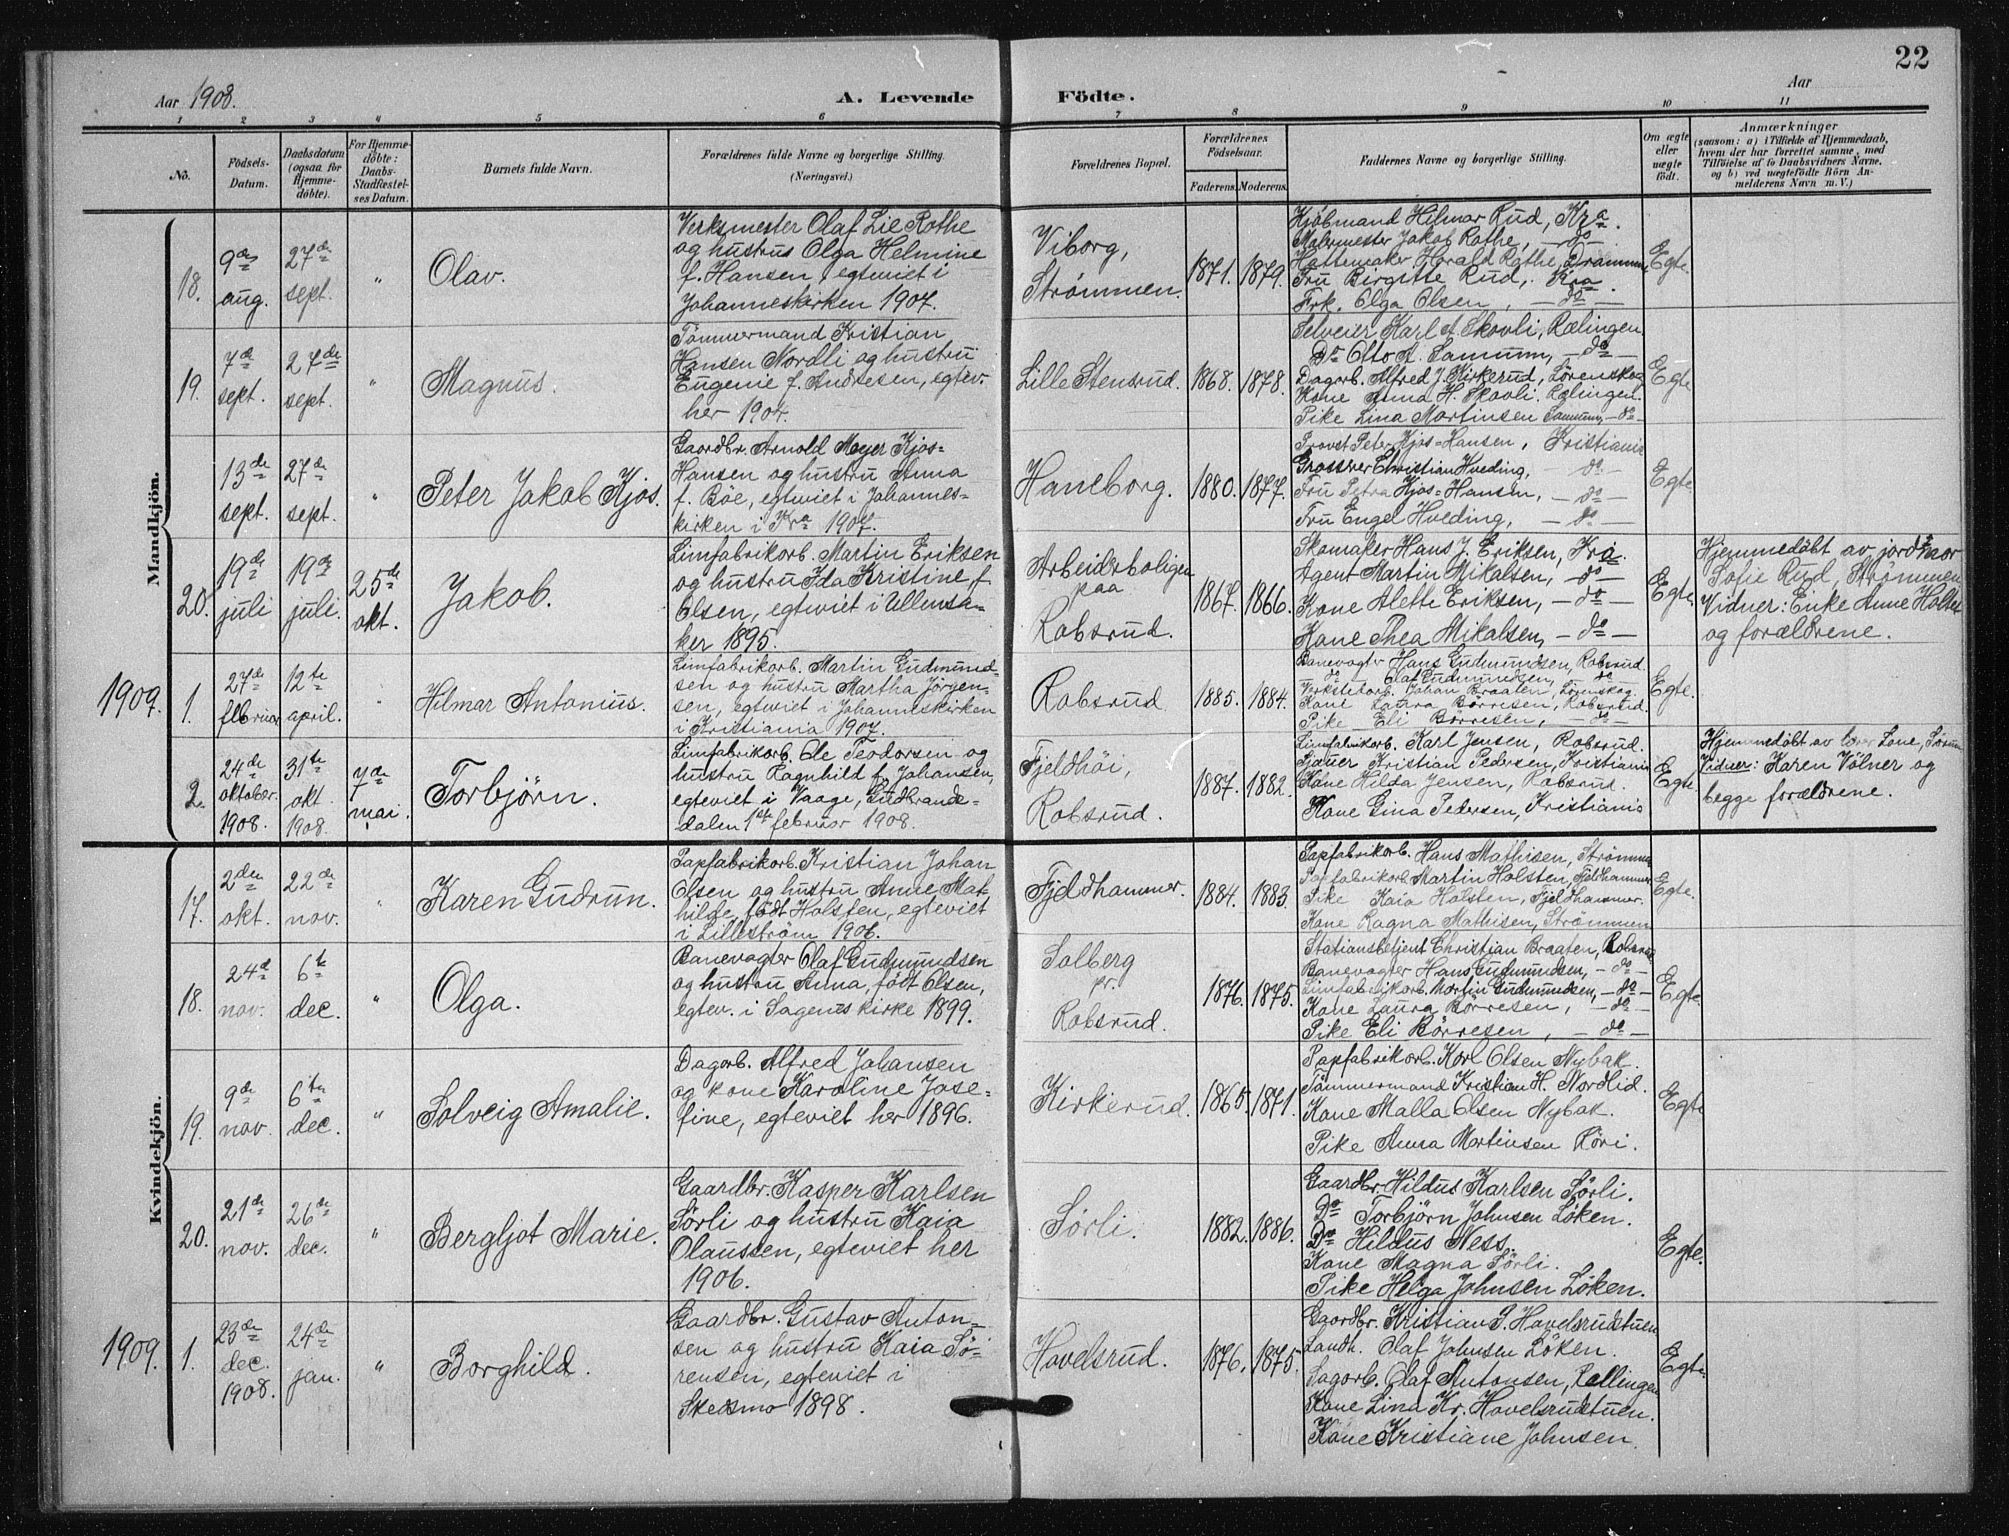 22
Aar 1908.
A. Levende Födte.
Aar
1 2 3 4 5 6 7 8 9 10 11
No.
Födsels-
Datum.
Daabsdatum
(ogsaa for
Hjemme-
döbte).
For Hjemme-
döbte:
Daabs-
Stadfæstel-
ses Datum.
Barnets fulde Navn.
Forældrenes fulde Navne og borgerlige Stilling.
(Næringsvei.)
Forældrenes Bopæl.
Forældrenes
Födselsaar.
Faderens.
Moderens.
Faddernes Navne og borgerlige Stilling.
Om ægte
eller
uægte
födt.
Anmærkninger
(saasom: a) i Tilfælde af Hjemmedaab,
hvem der har forrettet samme, med
Tilföielse af to Daabsvidners Navne,
og b) ved uægtefödte Börn An-
melderens Navn m. V.)
Mandkjön.
18.
9de
aug.
27de
sept.
"
Olav.
Verksmester Olaf Lie Rothe
og hustrus Olga Helmine
f. Hansen, egteviet i
Johanneskirken 1907.
Viborg,
Strømmen.
1871.
1879.
Kjöbmand Hilmar Rud, Kra.
Malermester Jakob Rothe, — do —
Hattemaker Harald Rothe, Drammen
Fru Birgitte Rud, Kra.
Frk. Olga Olsen, — do —
Egte.
19.
7de
sept.
27de
sept.
"
Magnus.
Tömmermand Kristian
Hansen Nordli og hustru
Eugenie f. Andresen, egtev.
her 1904.
Lille Stensrud.
1868.
1878.
Selveier Karl A. Skovli, Rælingen
Do Otto A. Samuum, — do —
Dagarb. Alfred J. Kirkerud, Lørenskog
Kone Anna H. Skovli, Rælingen.
Pike Lina Martinsen Samuum, — do —
Egte
20.
13de
sept.
27de
sept.
"
Peter Jakob Kjos.
Gaardbr. Arnold Meyer Kjos-
Hansen og hustru Anna
f. Böe, egteviet i Johannes-
kirken i Kra 1907.
Haneborg.
1880.
1877.
Provst Peter Kjos-Hansen, Kristiania
Grosserer Christian Hveding, — do —
Fru Petra Kjos-Hansen, — do —
Fru Engel Hveding, — do —
Egte
20.
19de
juli
19de
juli.
25de
okt.
Jakob.
Limfabrikarb. Martin Eriksen
og hustru Ida Kristine f.
Olsen, egteviet i Ullensa-
ker 1895.
Arbeiderboligen
paa
Robsrud.
1867.
1866.
Skomaker Hans J. Eriksen, Kra.
Agent Martin Mikalsen, — do —
Kone Alette Eriksen, — do —
Kone Thea Mikalsen, — do —
Egte.
Hjemmedöbt av jordmor
Sofie Rud, Strømmen
Vidner: Enke Anne Holter
og forældrene.
1909.
1.
27de
februar
12te
april.
"
Hilmar Antonius.
Limfabrikarb. Martin Gudmund-
sen og hustru Martha Jörgen-
sen, egteviet i Johanneskirken
i Kristiania 1907.
Robsrud.
1885.
1884.
Banevogter Hans Gudmundsen, Robsrud.
do Olaf Gudmundsen, do
Verkstedarb. Johan Braaten, Lørenskog.
Kone Laura Börresen, Robsrud.
Pike Eli Börresen, — do —
Egte.
2.
24de
oktober
1908.
31te
okt.
1908.
7de
mai.
Torbjörn.
Limfabrikarb. Ole Teodorsen og
hustru Ragnhild f. Johansen,
egteviet i Vaage, Gudbrands-
dalen 1ste februar 1908.
Fjeldhöi,
Robsrud.
1887.
1882.
Limfabrikarb. Karl Jensen, Robsrud.
Sjauer Kristian Pedersen, Kristiania
Kone Hilda Jensen, Robsrud.
Kone Gina Pedersen, Kristiania
Egte
Hjemmedöbt av lærer Lone, Sørum
Vidner: Karen Völner og
begge forældrene.
Kvindekjön.
17.
2den
okt.
22de
nov.
"
Karen Gudrun.
Papfabrikarb. Kristian Johan
Olsen og hustru Anne Mat-
hilde, födt Holsten, egteviet
i Lilleström 1906.
Fjeldhammer.
1884.
1883.
Papfabrikarb. Hans Mathisen, Strömmen
Papfabrikarb. Martin Holsten, Fjeldhammer
Pike Kaia Holsten, Fjeldhammer.
Kone Ragna Mathisen, Strömmen
Egte.
18.
24de
nov.
6te
dec.
"
Olga.
Banevogter Olaf Gudmundsen
og hustru Anna, födt Olsen,
egtev. i Sagenes kirke 1899.
Solberg
pr.
Robsrud.
1876.
1875.
Stationsbetjent Christian Braaten, Robsrud
Banevogter Hans Gudmundsen, — do —
Limfabrikarb. Martin Gudmundsen, — do —
Kone Laura Börresen, — do —
Pike Eli Börresen, — do —
Egte.
19.
9de
nov.
6te
dec.
"
Solveig Amalie.
Dagarb. Alfred Johansen
og kone Karoline Jose-
fine, egteviet her 1896.
Kirkerud.
1865.
1871.
Papfabrikarb. Karl Olsen Nybak.
Tömmermand Kristian H. Nordlid.
Kone Malla Olsen Nybak.
Pike Anna Martinsen Köri.
Egte
20.
21de
nov.
26de
dec.
"
Bergljot Marie.
Gaardbr. Kasper Karlsen
Sörli og hustru Kaia
Olaussen, egteviet her
1906.
Sørli.
1882.
1886.
Gaardbr. Hildus Karlsen Sörli.
Do Torbjörn Johnsen Löken.
Do Hildus Ness.
Kone Magna Sörli.
Pike Helga Johnsen Løken.
Egte.
1909.
1.
23de
dec.
1908.
24de
jan.
"
Borghild.
Gaardbr. Gustav Anton-
sen og hustru Kaia Sö-
rensen, egteviet i
Skedsmo 1898.
Hovelsrud.
1876.
1875.
Gaardbr. Kristian S. Hovelsrudstuen
Landh. Olaf Johnsen Löken.
Sagarb. Olaf Antonsen, Rellingen
Kone Lina Kr. Hovelsrudstuen.
Kone Kristiane Johnsen.
Egte